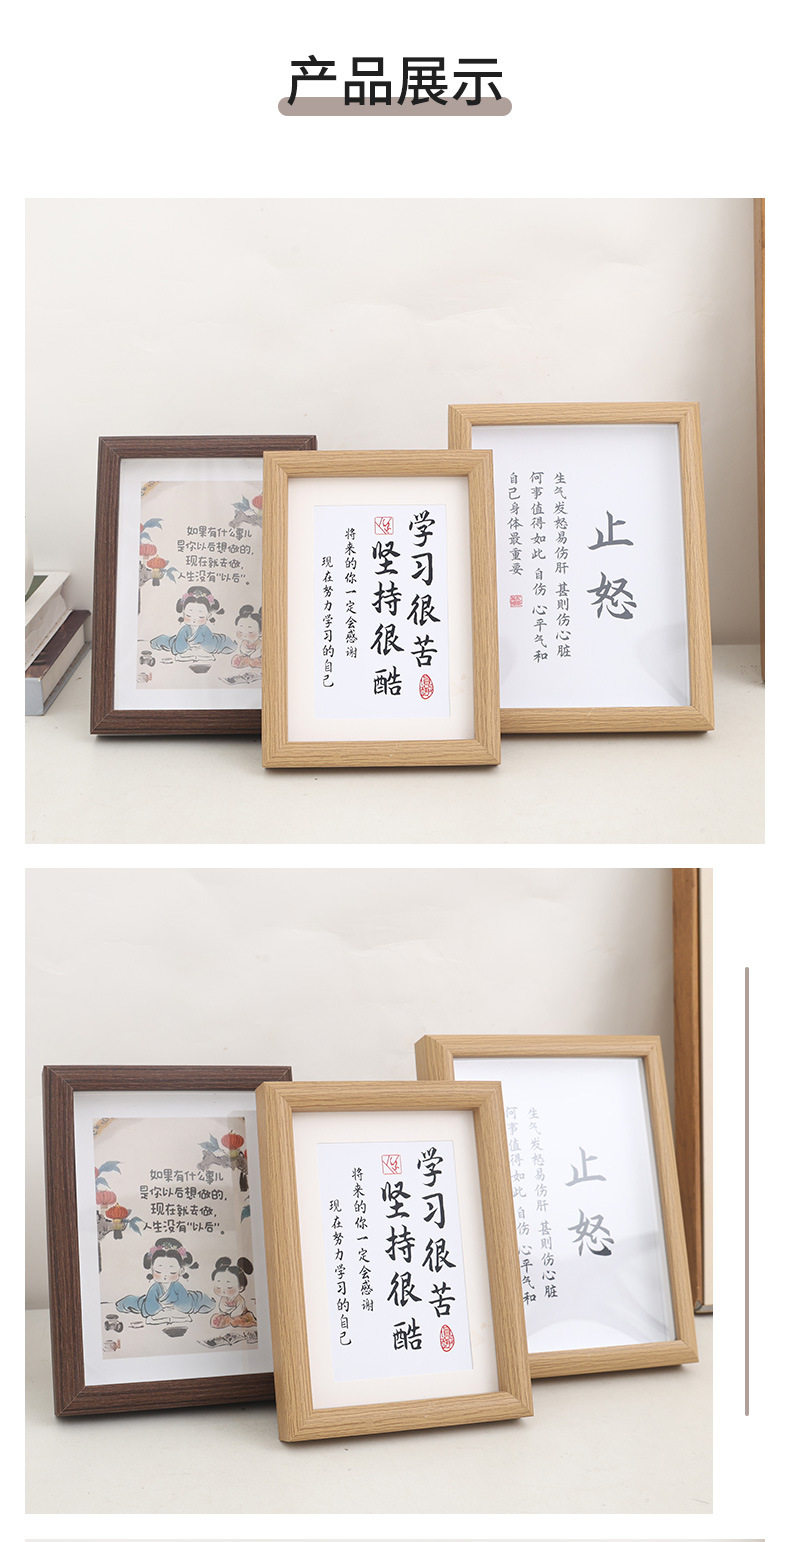 产品展示
如果有什么事儿
是你以后想做的,
现在就去做,
人生没有"以后"。
学习很苦
坚持很酷
将来的你一定会感谢
现在努力学习的自己
止怒
生气发怒易伤肝 甚则伤心脏
何事值得如此自伤 心平气和
自己身体最重要
如果有什么事儿
是你以后想做的,
现在就去做,
人生没有"以后"。
学习很苦
坚持很酷
将来的你一定会感谢
现在努力学习的自己
止怒
生气发怒易伤肝 甚则伤心脏
何事值得如此自伤 心平气和